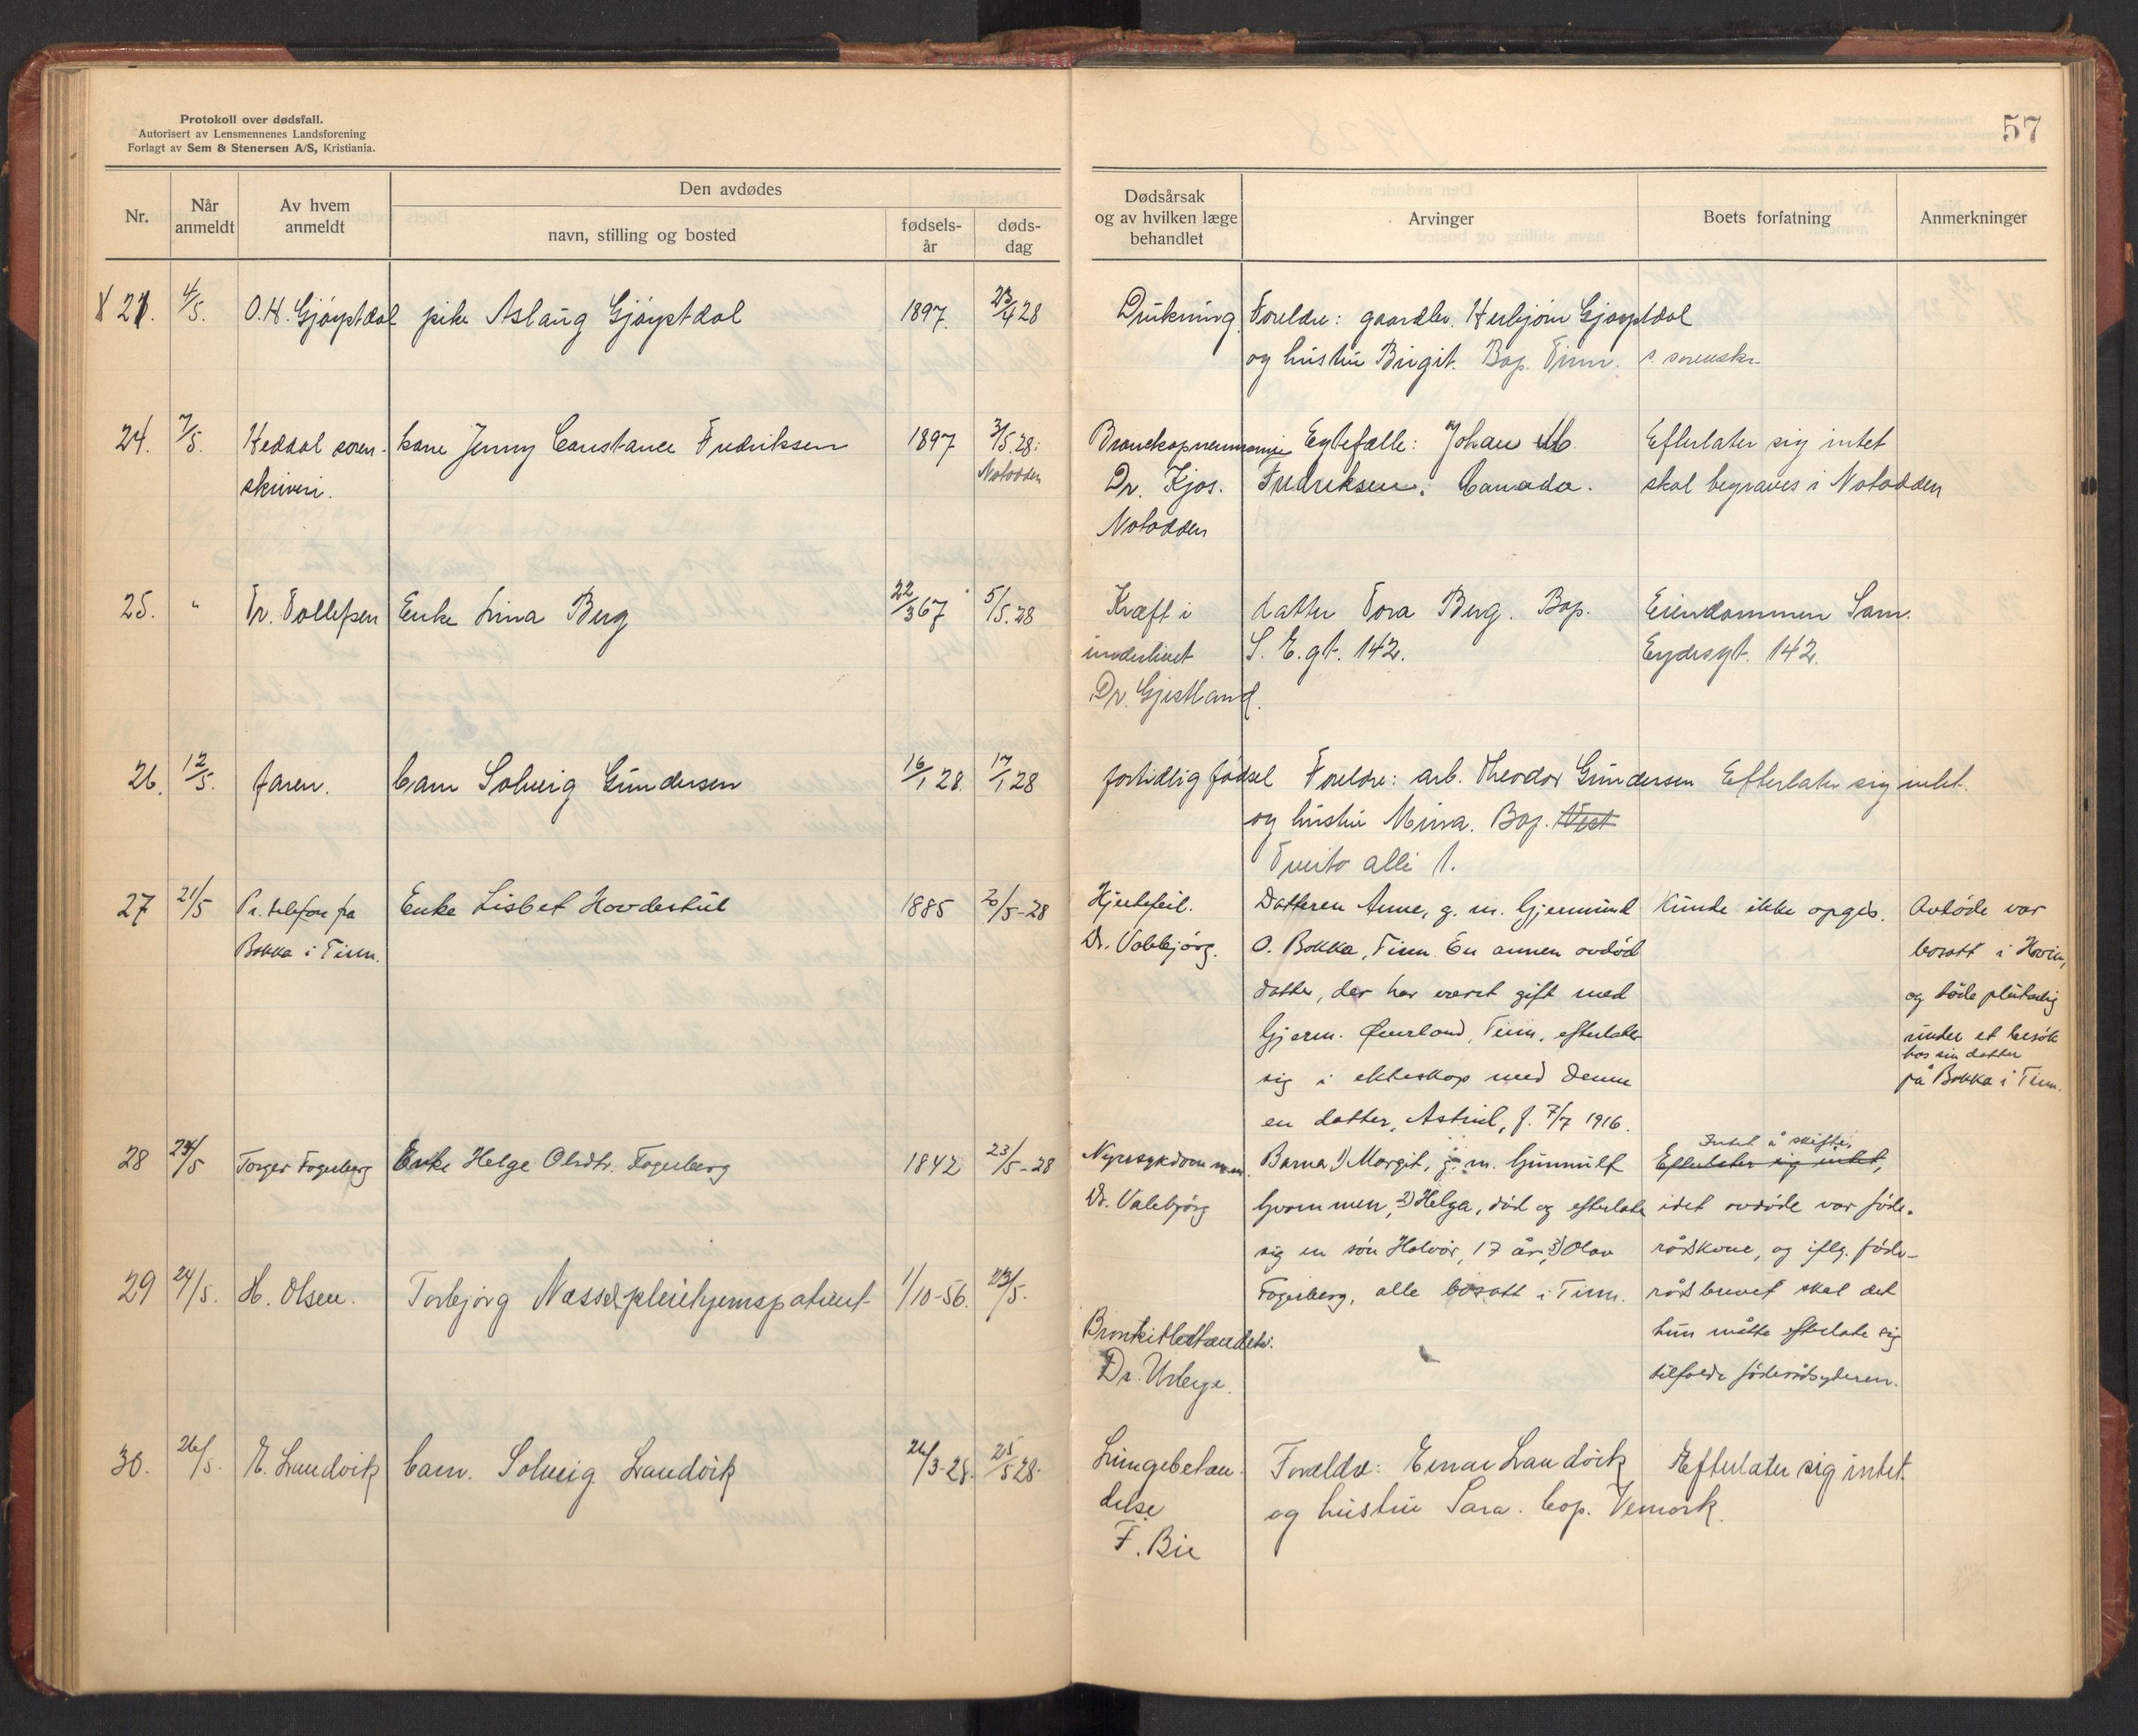 Protokoll over dødsfall.
Autorisert av Lensmennenes Landsforening
Forlagt av Sem & Stenersen A/S, Kristiania.
57
Nr.
Når anmeldt
Av hvem anmeldt
Den avdødes
navn, stilling og bosted
fødsels-år
døds-dag
Dødsårsak
og av hvilken læge
behandlet
Arvinger
Boets forfatning
Anmerkninger
4/5. O.H. Gjøystdal pike Aslaug Gjøystdal 1897. 23/4 28 Drukning Foreldre: gaardbr. Herbjørn Gjøystdal
og hustru Birgit. Bop. Tinn. s. sorenskr.
24. 7/5. Heddal soren- kone Jenny Constance Fredriksen 1897 3/5.28: Bronckopneumonie Egtefælle: Johan M. Efterlater sig intet
skriveri. Notodden Dr. Kjos. Fredriksen, Canada. skal begraves i Notodden
Notodden
25. " Tr. Tollefsen Enke Lina Berg 22/3 67 5/5.28 Kræft i datter Tora Berg. Bop. Eiendommen Sam.
underlivet S. E. gt. 142. Eydesgt. 142.
Dr. Gjestland.
26. 12/5. faren. barn Solveig Gundersen 16/1 28. 17/1 28 fortidlig fødsel Foreldre: arb. Theodor Gundersen Efterlater sig intet.
og hustru Minna. Bop. Vest
Tveito alle 1.
27 21/5 Pr. telefon fra Enke Lisbet Hovdestul 1885 20/5-28 Hjertefeil. Datteren Anne, g. m. Gjermund Kunde ikke opgis. Avdøde var
Bokka i Tinn. Dr. Valebjørg. O. Bokka, Tinn. En annen avdød bosatt i Hovin,
datter, der har været gift med og døde plutselig
Gjerm. Øverland, Tinn, efterlater under et besøk
hos sin datter
sig i ekteskap med denne på Bokka i Tinn.
en datter, Astrid, f. 7/7 1916.
Intet å skifte,
28 24/5 Torger Fogerberg Enke Helge Olsdtr. Fogerberg 1842 23/5-28 Nyresykdom m.m. Barna 1) Margit, g. m. Gunnulf Efterlater sig intet,
Dr. Valebjørg 2) Helga, død og efterlate idet avdøde var føde-
sig en søn Halvor, 17 år, 3) Olav rådskone, og iflg. føde-
Fogerberg, alle bosatt i Tinn. rådsbrevet skal det
hun måtte efterlate sig
tilfalde føderådsyderen.
29 24/5. H. Olsen. Torbjørg Næsset pleiehjemspatient 1/10-56. 23/5.
Dr. Usberge.
30. 26/5. E. Landvik barn. Solveig Landvik 3-28. 25/5 28. Lungebetæn- Forældre: Einar Landvik Efterlater sig intet.
delse og hustru Sara. bop. Vemork.
F. Bie